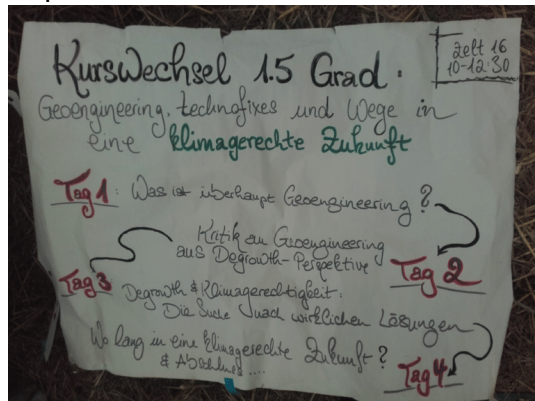 Kurswechsel 1.5 Grad.
Zelt 16
10-12.30
Geoengineering, technofixes und Wege in
eine klimagerechte Zukunft
Tag 1: Was ist überhaupt Geoengineering?
Kritik an Geoengineering
aus Degrowth-Perspektive
Tag 2
Tag 3
Degrowth & Klimagerechtigkeit:
Die Suche nach wirklichen Lösungen
Wo lang in eine klimagerechte Zukunft?
& Abschluss ....
Tag 4